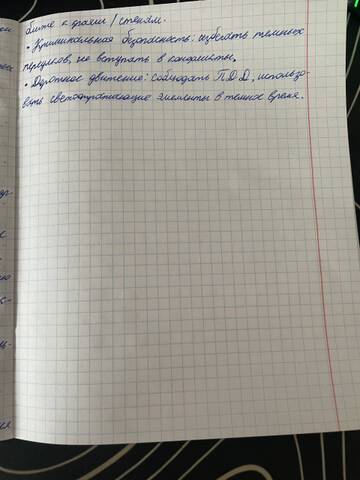 ближе к драки / стенам.
• Криминальная безопасность: избегать темных
переулков, не вступать в конфликты.
• Дорожное движение: соблюдать П.Д.Д, использо-
вать светоотражающие элементы в темное время.